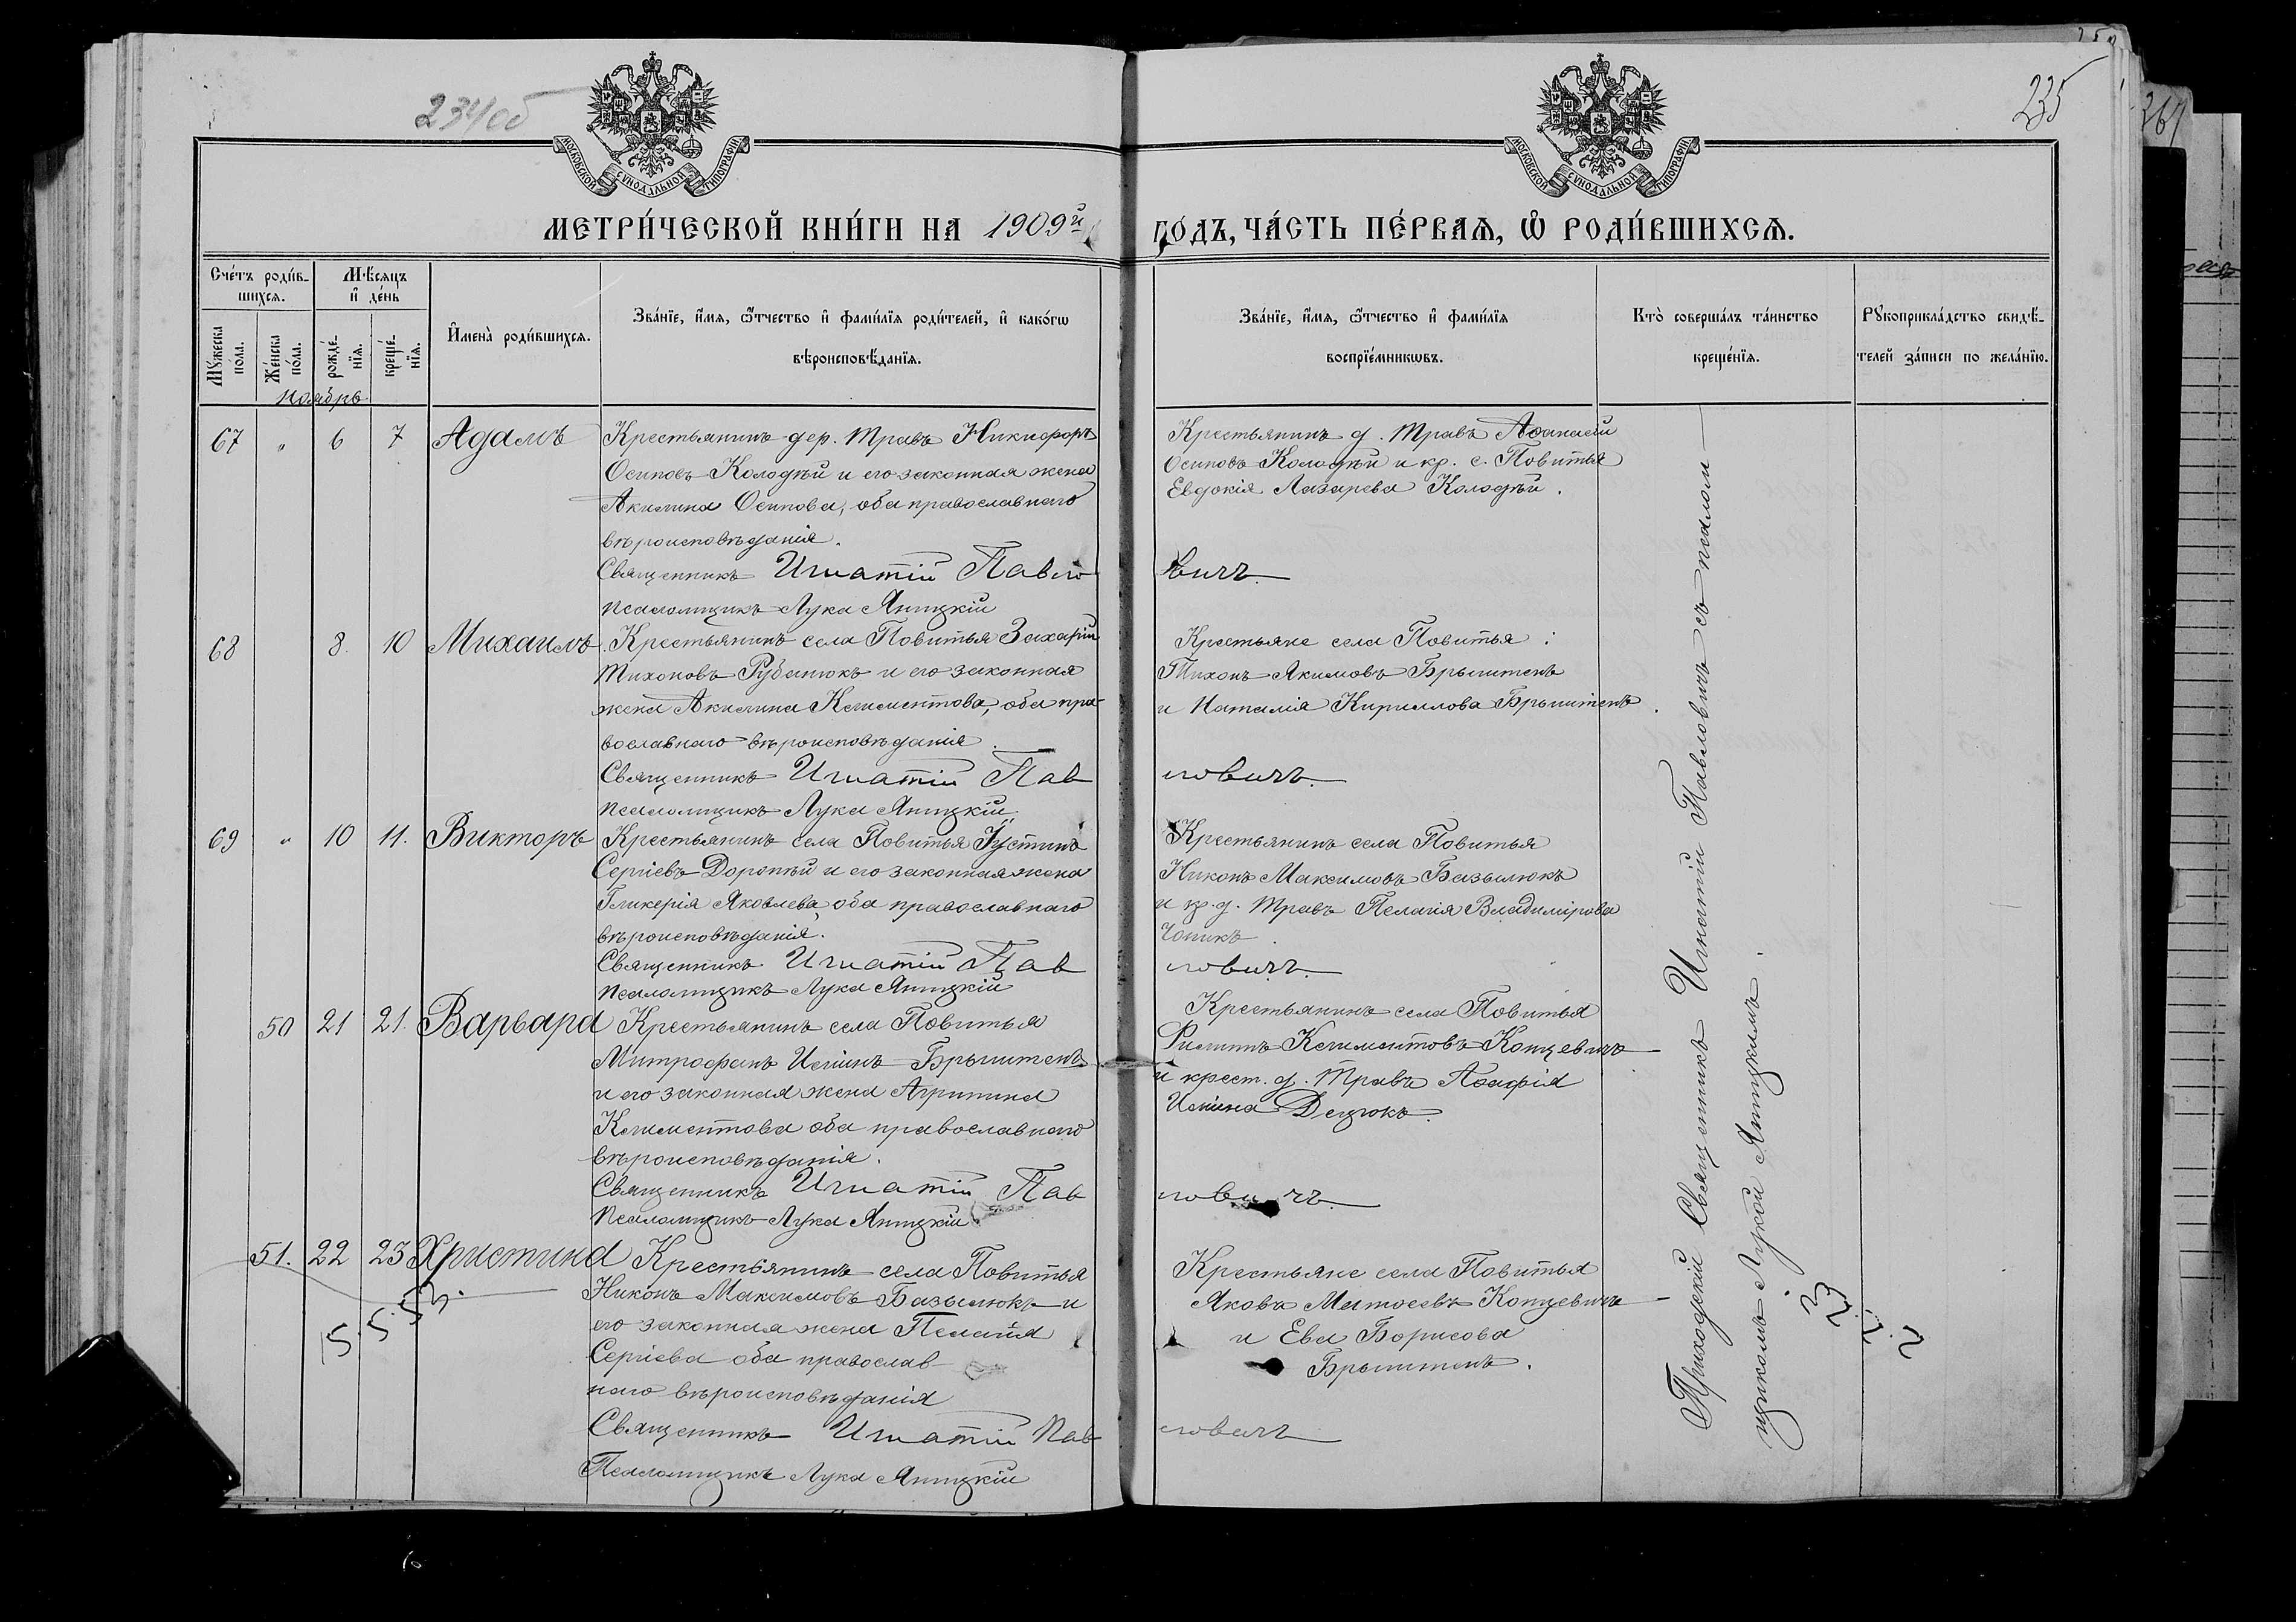 234об
235
МОСКОВСКОЙ СѴНОДАЛЬНОЙ ТИПОГРАФІИ
МОСКОВСКОЙ СѴНОДАЛЬНОЙ ТИПОГРАФІИ
МЕТРИ́ЧЕСКОЙ КНИ́ГИ НА 1909й
ГО́ДЪ, ЧА́СТЬ ПЕ́РВАѦ, Ѽ РОДИ́ВШИХСѦ.
Сче́тъ роди́в-
шихсѧ.
Мѣ́сѧцъ
и҆ де́нь
Мꙋ́жеска
по́ла.
Же́нска
по́ла.
рожде́-
нїѧ.
креще́-
нїѧ.
И҆мена̀ роди́вшихсѧ.
Зва́нїе, и҆́мѧ, ѻ҆́тчество и҆ фами́лїѧ роди́телей, и҆ како́гѡ
вѣроисповѣ́данїѧ.
Зва́нїе, и҆́мѧ, ѻ҆́тчество и҆ фами́лїѧ
воспрїе́мникѡвъ.
Кто̀ соверша́лъ та́инство
креще́нїѧ.
Рꙋкоприкла́дство свидѣ́-
телей за́писи по жела́нїю.
Ноябрь
67 " 6 7 Адамъ
Крестьянинъ дер. Травъ Никифоръ
Осиповъ Колодѣй и его законная жена
Акилина Осипова, оба православнаго
вѣроисповѣданія.
Священникъ Игнатій Павло
Псаломщикъ Лука Яницкій
Крестьянинъ д. Травъ Аѳанасій
Осиповъ Колодѣй и кр. с. Повитья
Евдокія Лазарева Колодѣй.
вичъ.
68 8 10 Михаилъ.
Крестьянинъ села Повитья Захарій
Тихоновъ Рубанюкъ и его законная
жена Акилина Климентова, оба пра-
вославнаго вѣроисповѣданія.
Священникъ Игнатій Пав
Псаломщикъ Лука Яницкій
Крестьяне села Повитья:
Тихонъ Якимовъ Брыштень
и Наталія Кириллова Брыштень.
ловичъ.
69 " 10 11. Викторъ
Крестьянинъ села Повитья Іустинъ
Сергіевъ Доропѣй и его законная жена
Гликерія Яковлева, оба православнаго
вѣроисповѣданія.
Священникъ Игнатій Пав
Псаломщикъ Лука Яницкій
Крестьянинъ села Повитья
Никонъ Максимовъ Базылюкъ
и кр. д. Травъ Пелагія Владимірова
Чопикъ.
ловичъ.
50 21 21. Варвара
Крестьянинъ села Повитья
Митрофанъ Иліинъ Брыштень
и его законная жена Агрипина
Климентова оба православнаго
вѣроисповѣданія.
Священникъ Игнатій Пав
Псаломщикъ Лука Яницкій
Крестьянинъ села Повитья
Филиппъ Климентовъ Концевичъ
и крест. д. Травъ Агафія
Иліина Децюкъ.
ловичъ.
51. 22 23 Христина
Крестьянинъ села Повитья
Никонъ Максимовъ Базылюкъ и
его законная жена Пелагія
Сергіева оба православ-
наго вѣроисповѣданія
Священникъ Игнатій Пав
Псаломщикъ Лука Яницкій
Крестьяне села Повитья
Яковъ Матѳеевъ Концевичъ
и Ева Борисова
Брыштень.
ловичъ
Приходскій Священникъ Игнатій Павловичъ съ псалом-
щикомъ Лукой Яницкимъ.